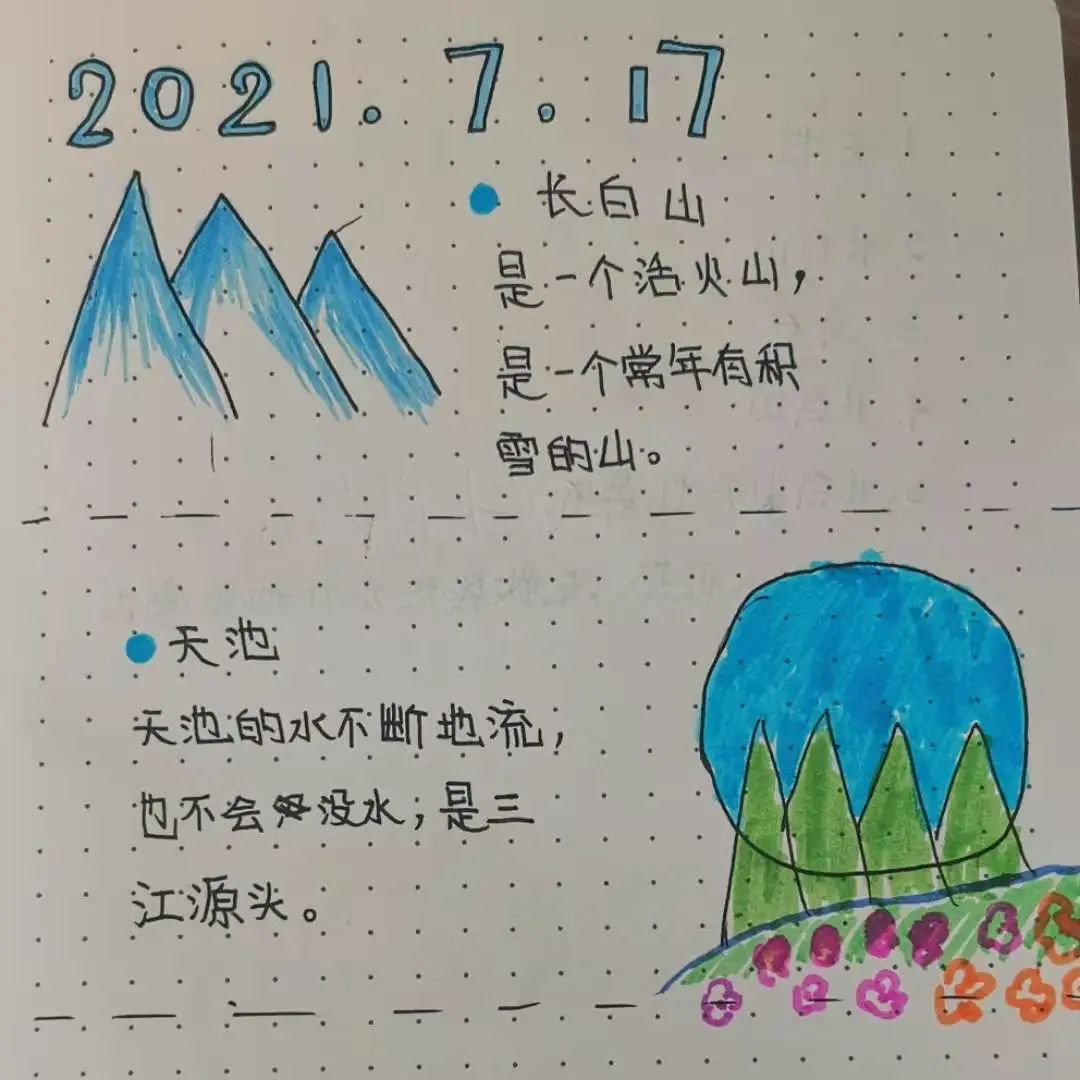 2021.7.17
长白山
是一个活火山，
是一个常年有积
雪的山。
天池
天池的水不断地流，
也不会没水；是三
江源头。